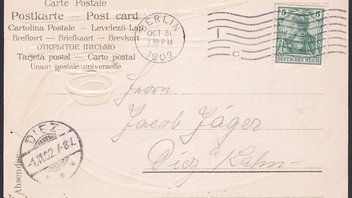 Carte Postale
Postkarte — Post card
Cartolina Postale — Levelező Lap
Brefkort — Briefkaart — Brevkort
ОТКРЫТОЕ ПИСЬМО
Tarjeta postal — Carto postal
Union postale universelle
BERLIN
OCT 31
1 30 PM
1902
C
5 5
DEUTSCHES REICH
Herrn
Jacob Jäger
Diez a Lahn
DIEZ
-1.11.02. 7-8V.
Absender